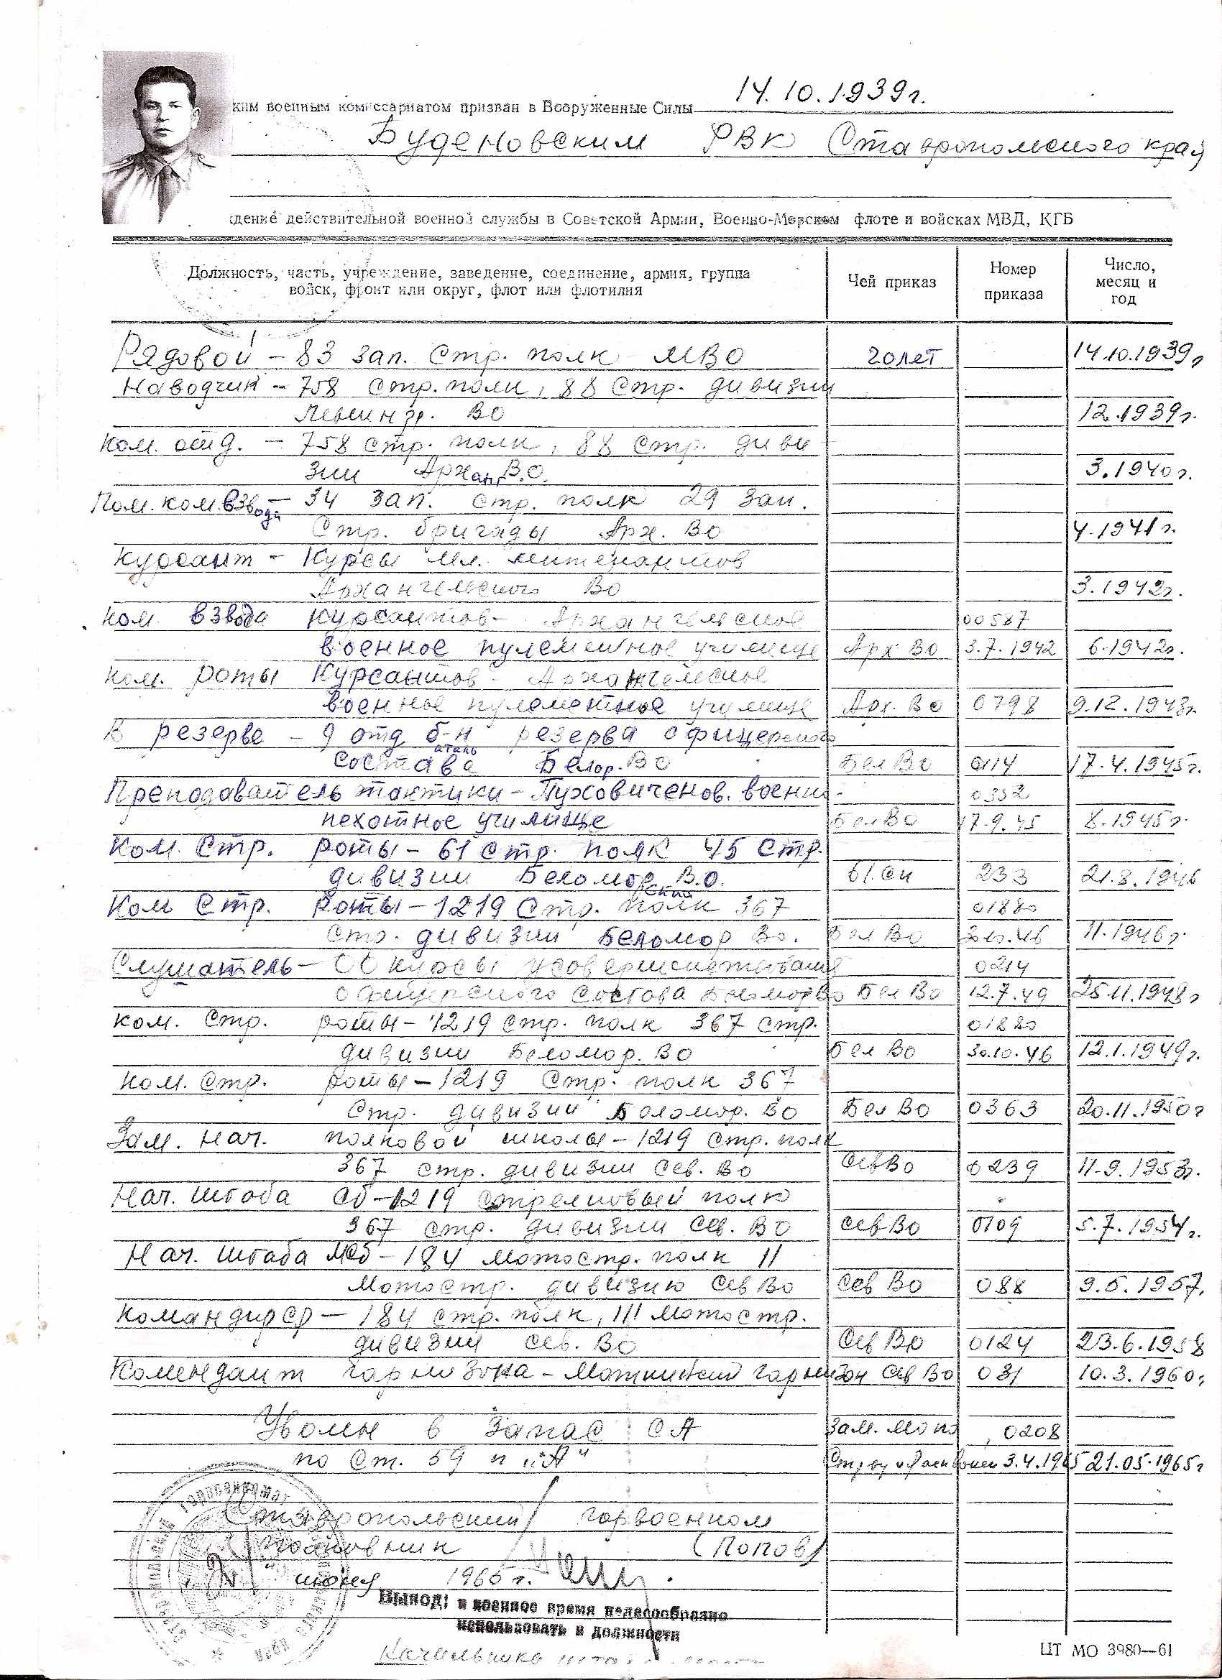 ким военным комиссариатом призван в Вооруженные Силы 14.10.1939г.
Буденовским РВК Ставропольского края
дение действительной военной службы в Советской Армии, Военно-Морском флоте и войсках МВД, КГБ
Должность, часть, учреждение, заведение, соединение, армия, группа войск, фронт или округ, флот или флотилия
Чей приказ
Номер приказа
Число, месяц и год
Рядовой - 83 зап. стр. полк МВО 14.10.1939г
Наводчик - 758 стр. полк, 88 стр. дивизии
Ленингр. ВО 12.1939г.
Ком. отд. - 758 стр. полк, 88 стр. диви
зии Арханг В.О. 3.1940г.
Пом. ком. взвода - 34 зап. стр. полк 29 зап.
Стр. бригады Арх. ВО 4.1941г.
Курсант - Курсы мл. лейтенантов
Архангельского ВО 3.1942г.
Ком. взвода курсантов - Архангельское 00587
военное пулеметное училище Арх ВО 3.7.1942 6.1942г.
Ком. роты Курсантов - Архангельское
военное пулеметное училище Арх. ВО 0798 9.12.1943г.
В резерве - 9 отд б-н резерва офицерского
состава Белор. ВО Бел ВО 0114 17.4.1945г.
Преподаватель тактики - Пуховиченов. военно- 0352
пехотное училище Бел ВО 17.9.45 8.1945г.
Ком. Стр. роты - 61 стр. полк 45 стр.
дивизии Беломорский В.О. 61 сп 233 21.8.1946
Ком Стр. роты - 1219 Стр. полк 367 01880
стр. дивизии Беломор Во. Бел ВО 30.10.46 11.1946г.
Слушатель - Об курсы усовершенствования 0214
офицерского состава Беломор ВО Бел ВО 12.7.49 25.11.1948г
Ком. Стр. роты - 1219 стр. полк 367 стр. 01880
дивизии Беломор. ВО Бел ВО 30.10.46 12.1.1949г.
Ком. Стр. роты - 1219 стр. полк 367
Стр. дивизии Беломор. ВО Бел ВО 0363 20.11.1950г
Зам. нач. полковой школы - 1219 стр. полк
367 стр. дивизии Сев. ВО Сев ВО 0239 11.9.1953г.
Нач. штаба Сб - 1219 стрелковый полк
367 стр. дивизии Сев. ВО Сев ВО 0709 5.7.1954г.
Нач. штаба Мсб - 184 мотостр. полк 111
Мотостр. дивизию Сев ВО Сев ВО 088 9.5.1957.
Командир ср - 184 стр. полк, 111 мотостр.
дивизии Сев. ВО Сев ВО 0124 23.6.1958
Комендант гарнизона - гарнизон Сев ВО 031 10.3.1960г
Уволен в запас СА Зам. 0208
по Ст. 59 п "А" 3.4.1965 21.05.1965г
Ставропольский горвоенком
полковник (Попов)
2 июня 1965 г.
Вывод: в военное время целесообразно
использовать в должности
Начальника штаба
ЦТ МО 3980—61